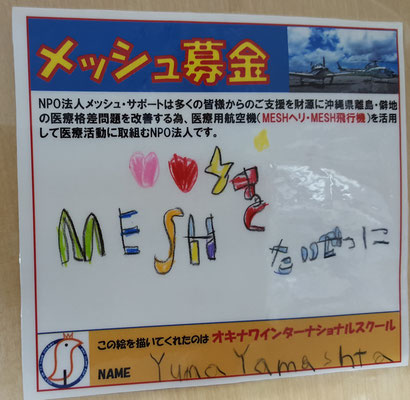 メッシュ募金
NPO法人メッシュ・サポートは多くの皆様からのご支援を財源に沖縄県離島・僻地
の医療格差問題を改善する為、医療用航空機(MESHヘリ・MESH飛行機)を活用
して医療活動に取組むNPO法人です。
MESH
この絵を描いてくれたのは オキナワインターナショナルスクール
NAME Yuna Yamashta